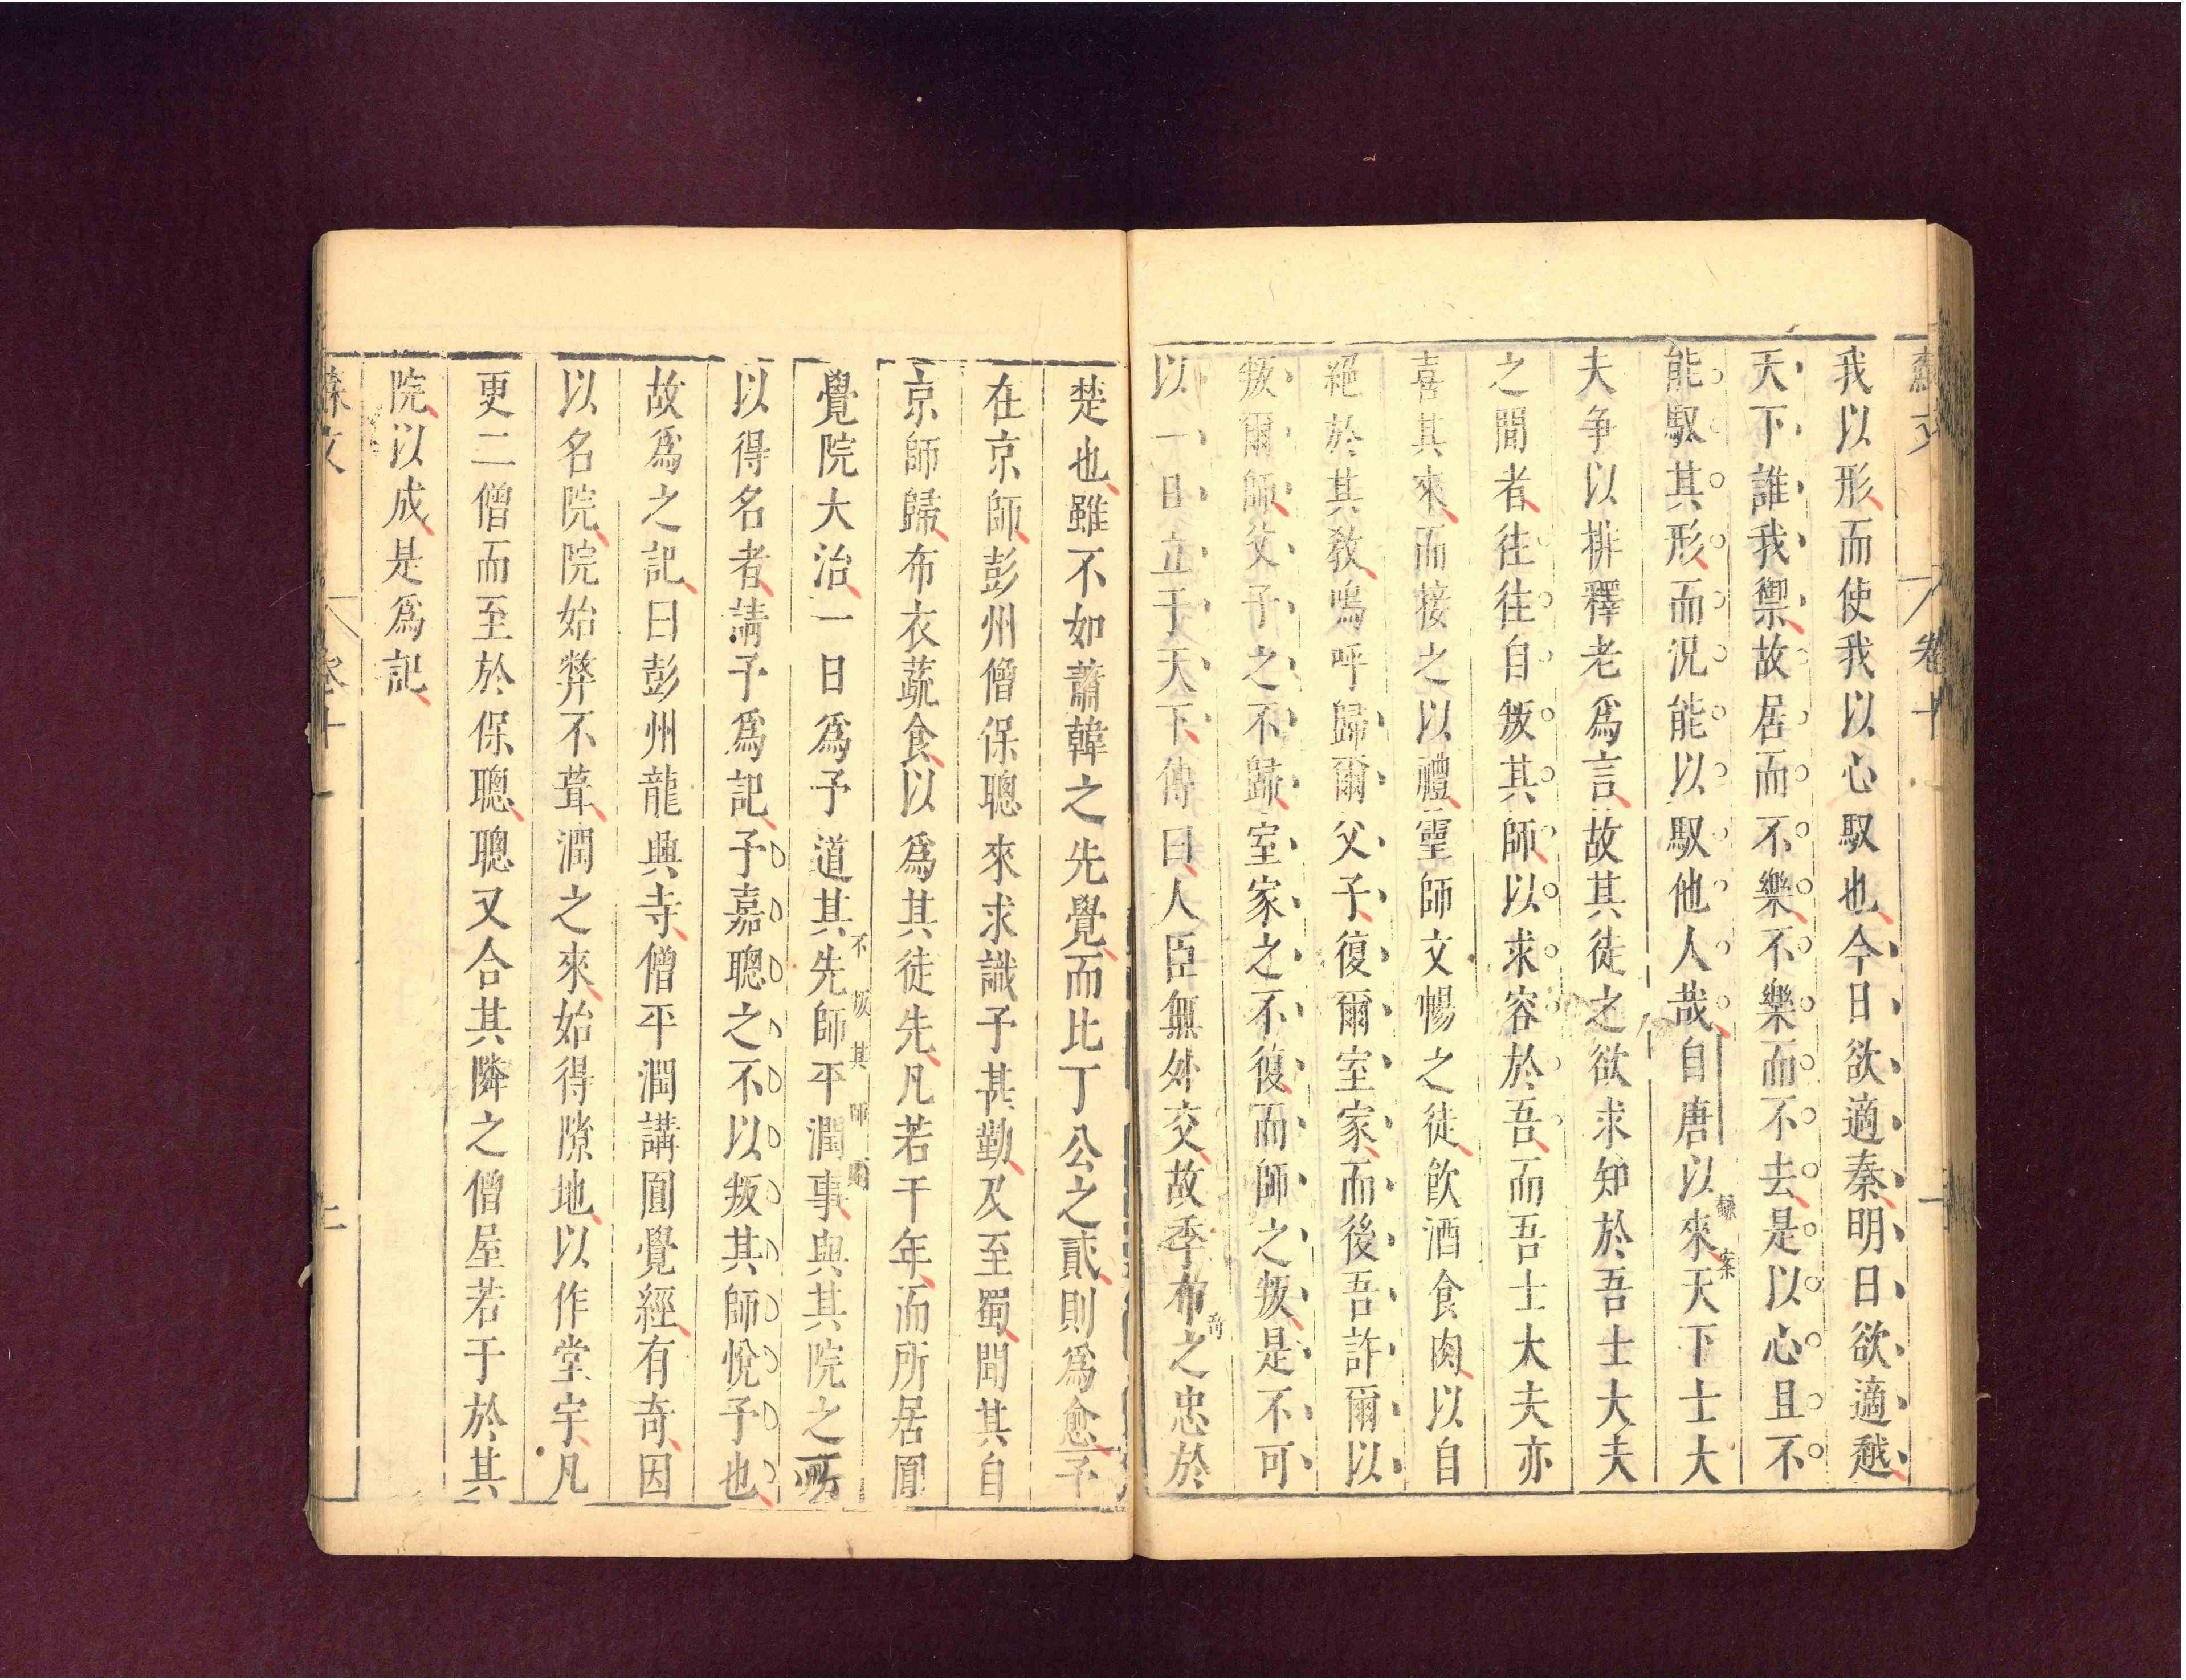 蘇文 卷十 一
我以形而使我以心馭也今日欲適秦明日欲適越
天下誰我禦故居而不樂不樂而不去是以心且不
能馭其形而況能以馭他人哉自唐以來天下士大
夫争以排釋老爲言故其徒之欲求知於吾士大夫
之間者徃徃自叛其師以求容於吾而吾士大夫亦
喜其來而接之以禮靈師文暢之徒飲酒食肉以自
絕於其敎嗚呼歸爾父子復爾室家而後吾許爾以
叛爾師父子之不歸室家之不復而師之叛是不可
以一日立于天下傳曰人臣無外交故季布之忠於
楚也雖不如蕭韓之先覺而比丁公之貳則爲愈予
在京師彭州僧保聰來求識予甚勤及至蜀聞其自
京師歸布衣蔬食以爲其徒先凡若干年而所居圓
覺院大治一日爲予道其先師平潤事與其院之所
不叛其師
以得名者請予爲記予嘉聰之不以叛其師悅予也
故爲之記曰彭州龍興寺僧平潤講圓覺經有奇因
以名院院始弊不葺潤之來始得隙地以作堂宇凡
更二僧而至於保聰聰又合其隣之僧屋若于於其
院以成是爲記
卷十